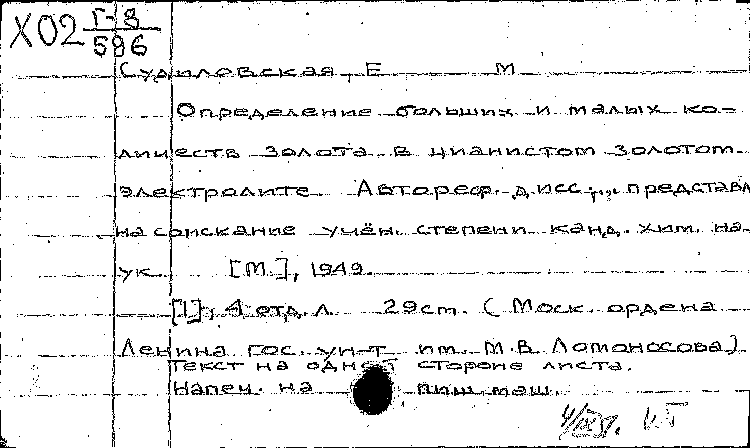 Х02 Г-8
586
Судиловская, Е М
Определение больших и малых ко-
личеств золота в цианистом золотом
электролите. Автореф. дисс..., представл
на соискание учён. степени канд. хим. на-
ук. [М.], 1949.
[1], 4 отд. л. 29 см. (Моск. ордена
Ленина гос. ун-т им. М. В. Ломоносова)
Текст на одной стороне листа.
Напеч. на пиш. маш.